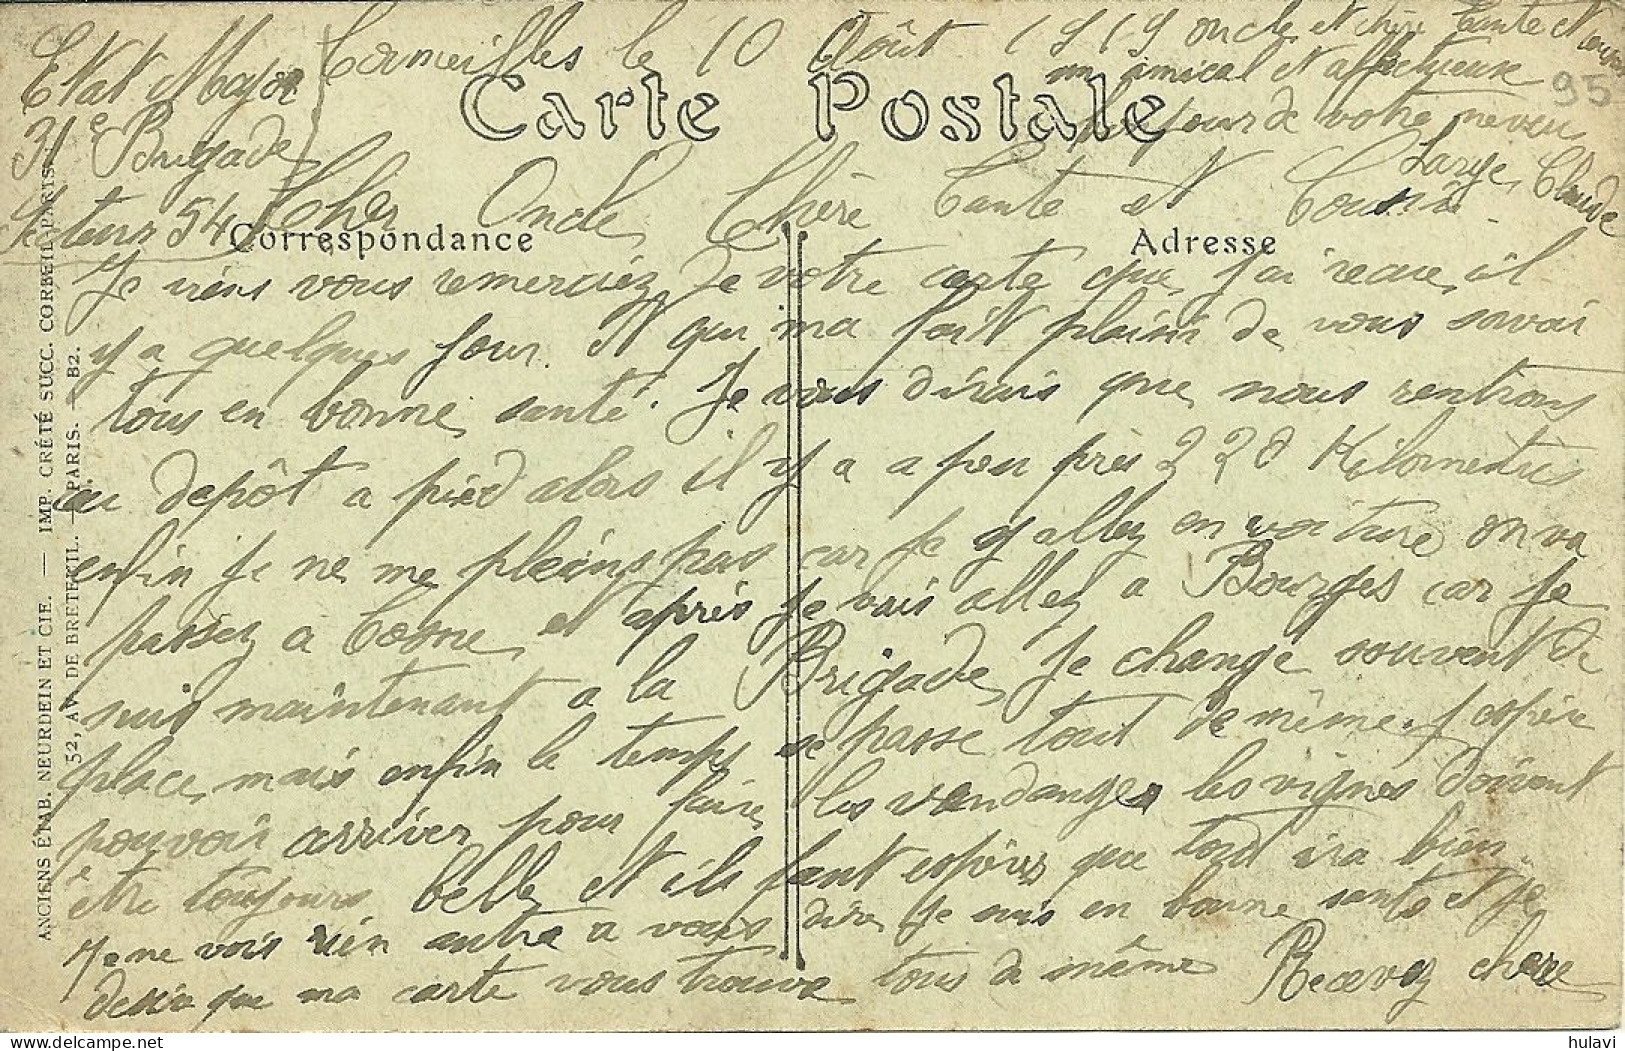 Etat Major
31e Brigade
Secteurs 54
Cormeilles le 10 Août 1919
Carte Postale
Cher Oncle Chère Tante et Cousine
Correspondance
Adresse
Je viens vous remerciez de votre carte que j'ai recue il
y a quelques jour. Et qui ma fait plaisi de vous savoir
tous en bonne santé. Je vous dirais que nous rentrons
au depôt a pied alors il y a a peu près 220 Kilometres
enfin je ne me pleins pas car je y allez en voiture on va
passez a Cosne et après je vais allez a Bourges car je
suis maintenant a la Brigade, je change souvent de
place, mais enfin le temps se passe tout de même. J'espère
pouvoir arriver pour faire les vendanges les vignes doivent
être toujours belle et il faut espérer que tout ira bien.
Je ne vois rien autre a vous dire je suis en bonne santé et je
desire que ma carte vous trouve tous de même Recevez chere
oncle et chère Tante et
un amical et affectueuse
de votre neveu
Large Claude
95
ANCIENS ÉTAB. NEURDEIN ET CIE. — IMP. CRÉTÉ SUCC. CORBEIL-PARIS.
52, AV. DE BRETEUIL. — PARIS. — B2.
hulavi
delcampe.net